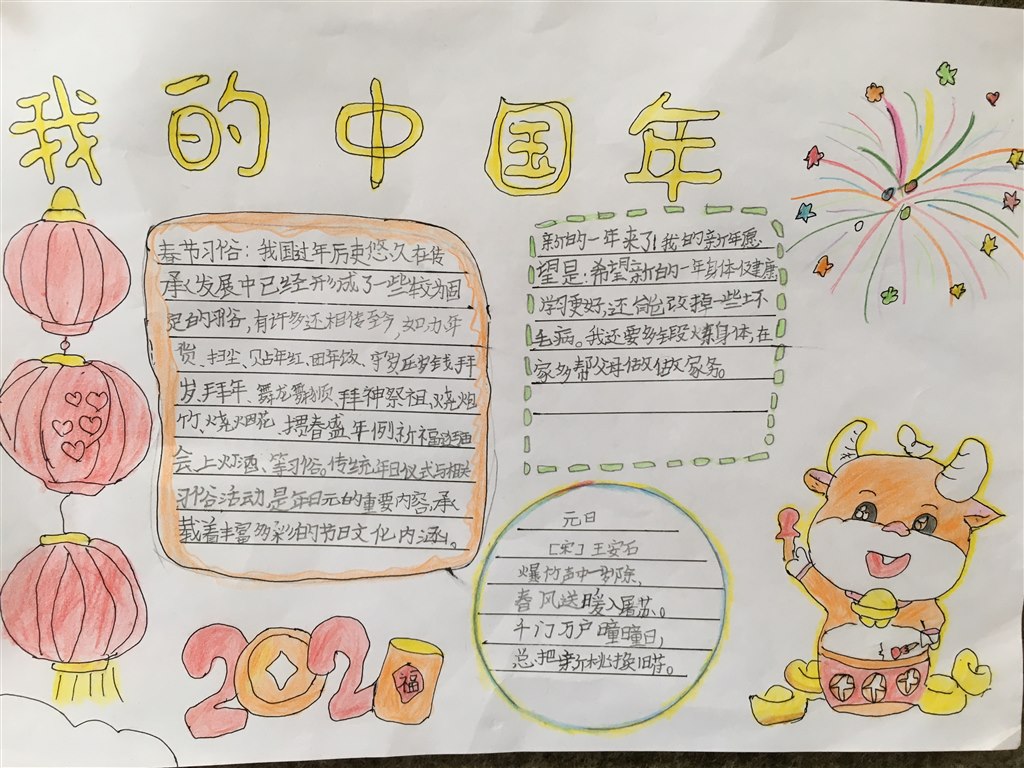 我的中国年
春节习俗：我国过年历史悠久在传
承发展中已经形成了一些较为固
定的习俗，有许多还相传至今，如办年
货、扫尘、贴年红、团年饭、守岁压岁钱、拜
岁、拜年、舞龙舞狮、拜神祭祖、烧炮
竹、烧烟花、掼春盛、年例、祈福、逛庙
会、上灯酒、等习俗。传统年日仪式与相关
习俗活动，是年日元的重要内容，承
载着丰富多彩的节日文化内涵。
新的一年来了！我的新年愿
望是：希望新的一年身体健康
学习更好，还有改掉一些坏
毛病。我还要多锻炼身体，在
家多帮父母做做家务。
元日
［宋］王安石
爆竹声中一岁除，
春风送暖入屠苏。
千门万户曈曈日，
总把新桃换旧符。
2021
福